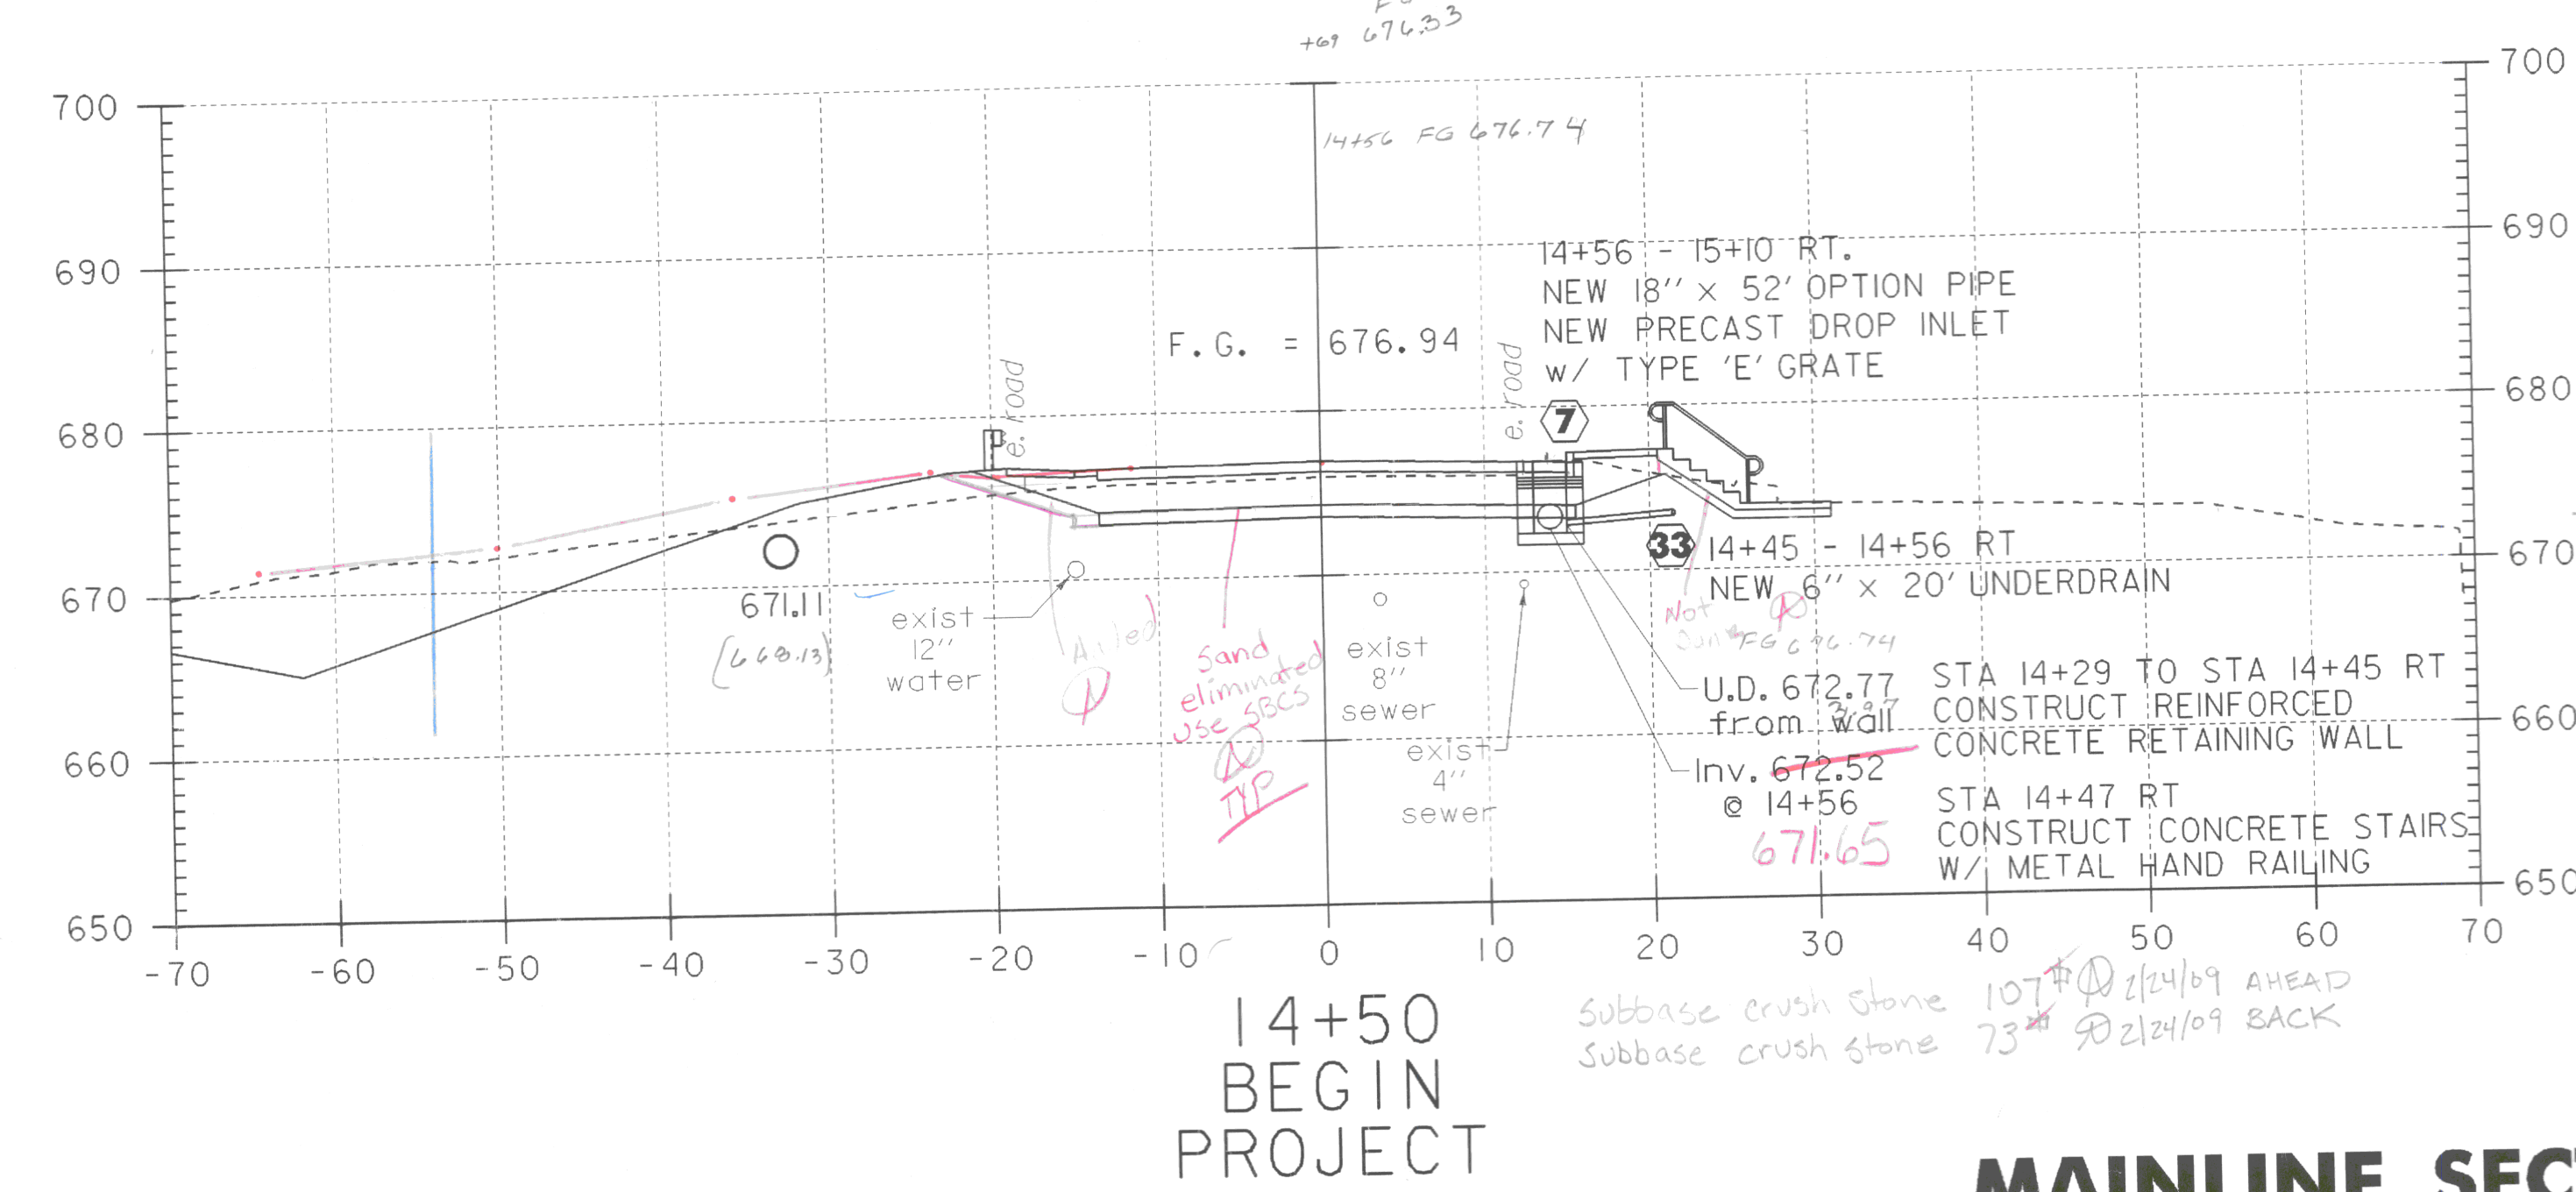 +69 676.33
14+56 FG 676.74
700
690
680
670
660
650
700
690
680
670
660
650
F.G. = 676.94
e. road
e. road
14+56 - 15+10 RT.
NEW 18" x 52' OPTION PIPE
NEW PRECAST DROP INLET
w/ TYPE 'E' GRATE
7
33
14+45 - 14+56 RT
NEW 6" x 20' UNDERDRAIN
Not
FG 676.74
671.11
(668.13)
exist
12"
water
Sand
eliminated
use SBCS
TYP
exist
8"
sewer
exist
4"
sewer
U.D. 672.77
from wall
Inv. 672.52
@ 14+56
671.65
STA 14+29 TO STA 14+45 RT
CONSTRUCT REINFORCED
CONCRETE RETAINING WALL
STA 14+47 RT
CONSTRUCT CONCRETE STAIRS
W/ METAL HAND RAILING
-70 -60 -50 -40 -30 -20 -10 0 10 20 30 40 50 60 70
14+50
BEGIN
PROJECT
Subbase crush stone 107 2/24/09 AHEAD
Subbase crush stone 73 2/24/09 BACK
MAINLINE SEC